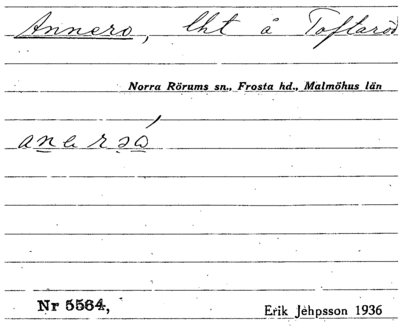 Annero, lht å Toftaröd
Norra Rörums sn., Frosta hd., Malmöhus län
Nr 5564,
Erik Jehpsson 1936